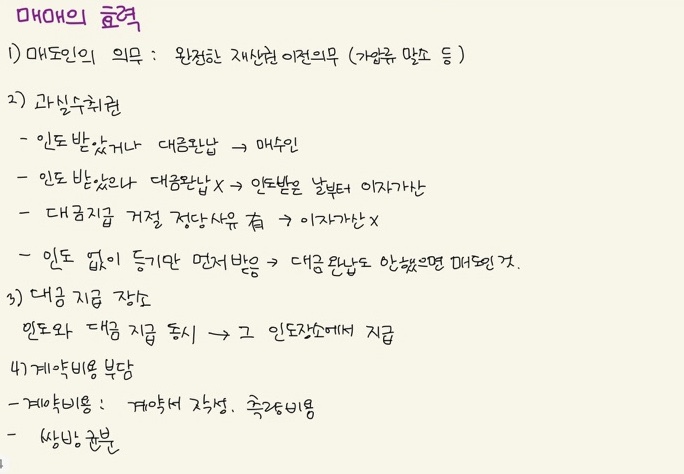 매매의 효력
1) 매도인의 의무 : 완전한 재산권 이전의무 (가압류 말소 등)
2) 과실수취권
- 인도 받았거나 대금완납 → 매수인
- 인도 받았으나 대금완납 X → 인도받은 날부터 이자가산
- 대금지급 거절 정당사유 有 → 이자가산 X
- 인도 없이 등기만 먼저받음 → 대금완납도 안했으면 매도인 것.
3) 대금 지급 장소
인도와 대금 지급 동시 → 그 인도장소에서 지급
4) 계약비용 부담
- 계약비용 : 계약서 작성. 측량비용
- 쌍방 균분